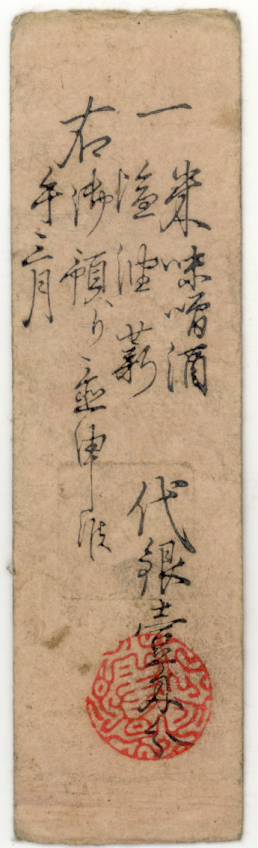 一
米味噌酒
塩油薪
代銀壹匁
右御預り置申候
午三月